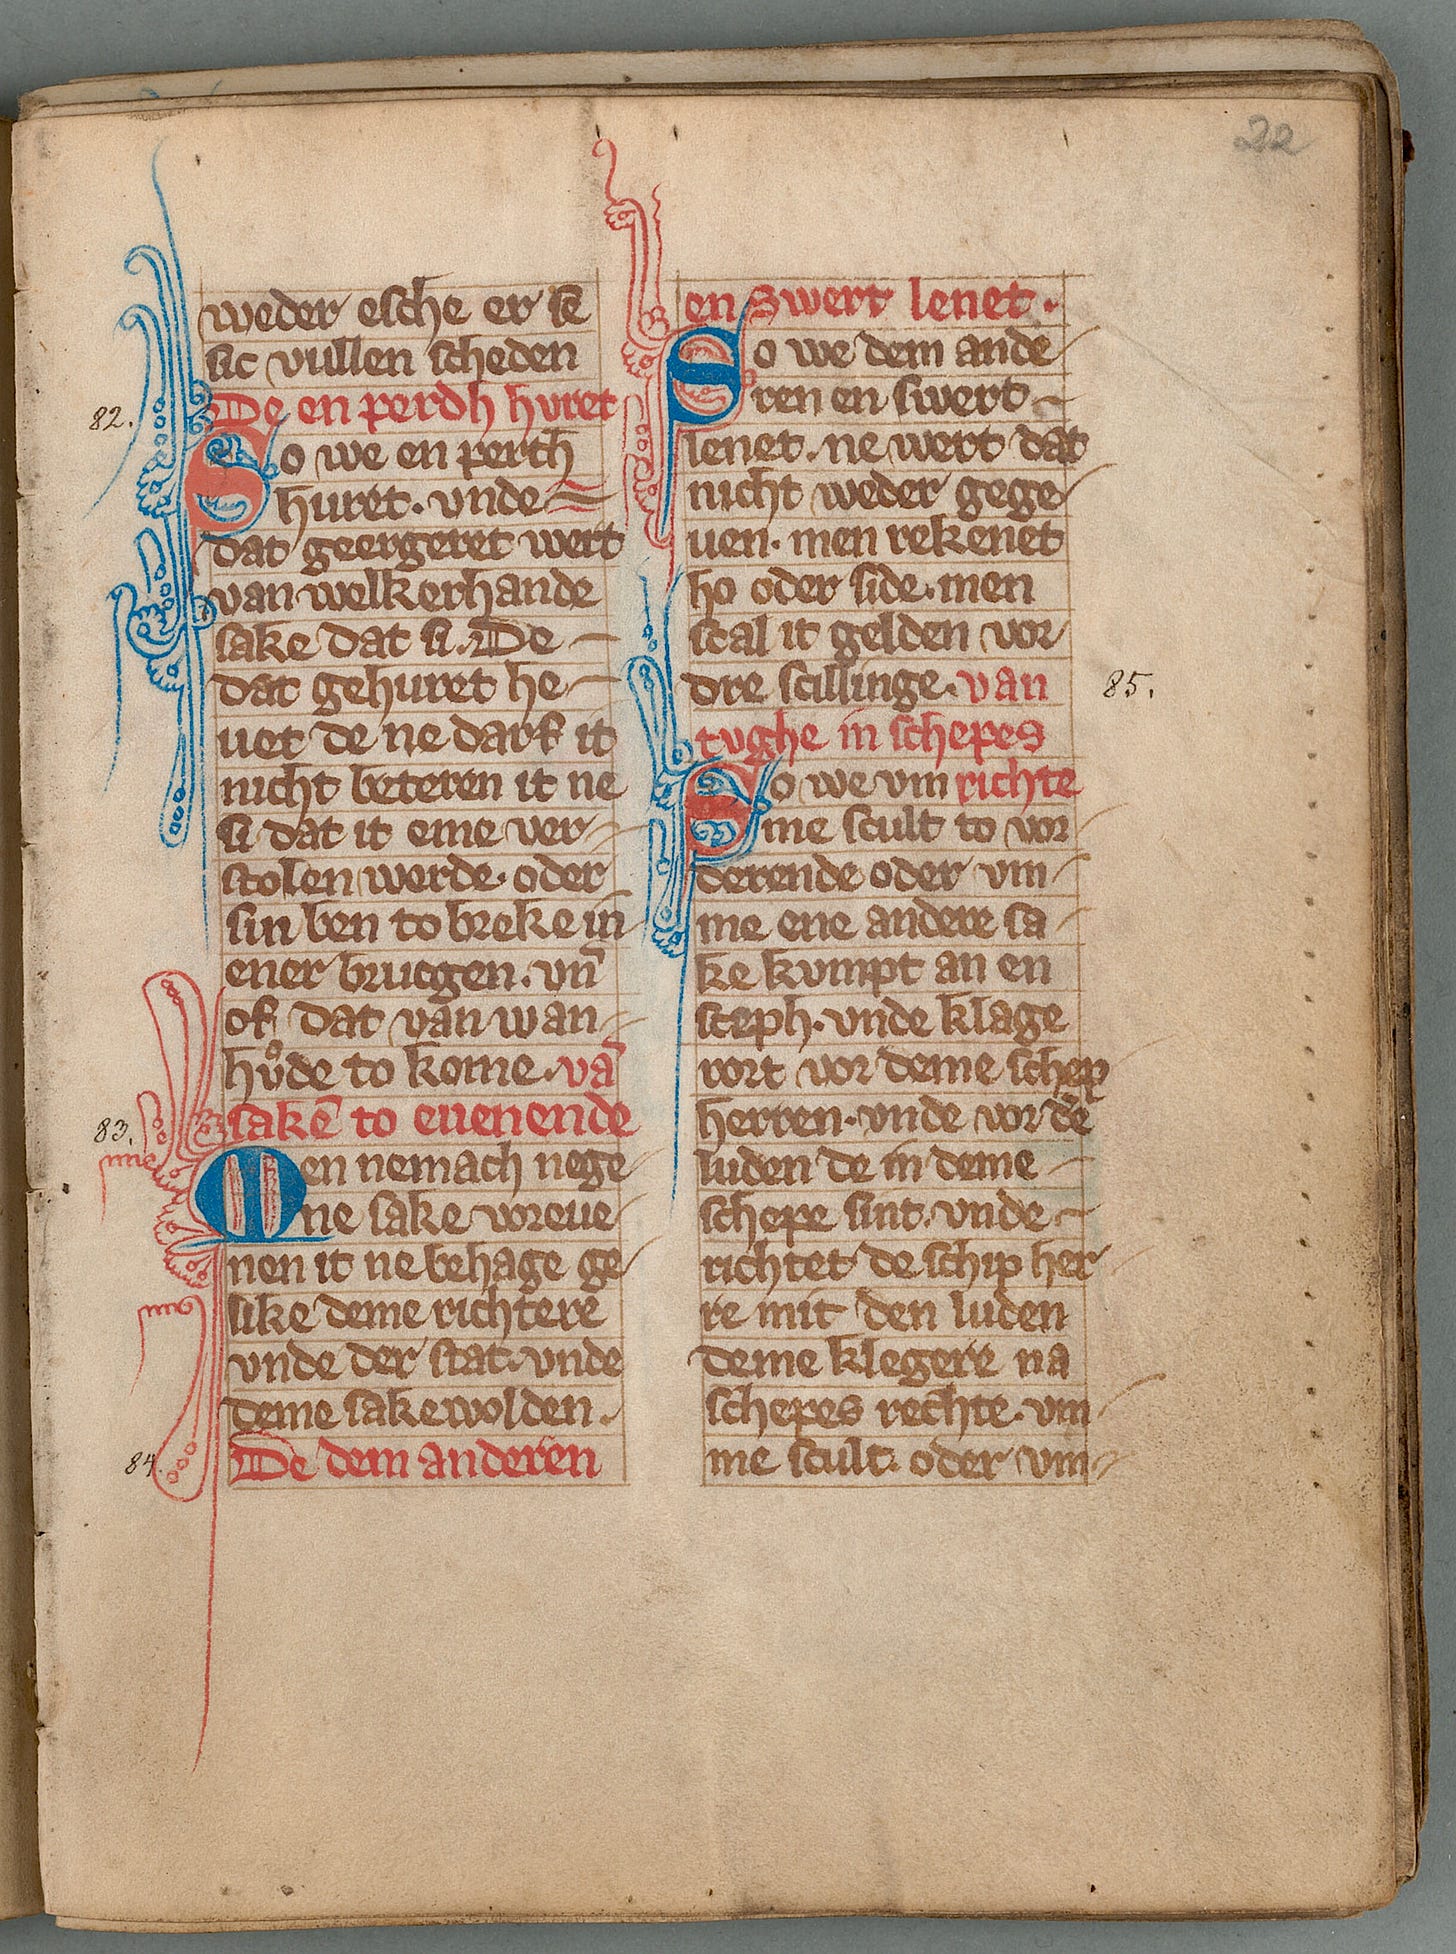 22
weder esche er sē
sic vullen scheden
82.
De en perdh huret
So we en perth
huret. vnde
dat geergeret wert
van welkerhande
sake dat si. De
dat gehuret he
uet de ne darf it
nicht beteren it ne
si dat it eme ver
stolen werde. oder
sin ben to breke in
ener brucgen. vn̄
of dat van wan
hůde to kome. vā
83.
sakē to euenende
Men nemach nege
ne sake voreue
nen it ne behage ge
like deme richtere
vnde der stat. vnde
deme sakewolden.
84.
De dem anderen
en swert lenet.
So we dem ande
ren en swert
lenet. ne wert dat
nicht weder gege
uen. men rekenet
ho oder side. men
scal it gelden vor
dre scillinge. van
85.
tvghe in schepes
So we vm richte
me scult to vor
derende oder vm
me ene andere sa
ke kvmpt an en
sceph. vnde klage
vort vor deme schep
herren. vnde vor dē
luden de in deme
schepe sint. vnde
richtet de schip her
re mit den luden
deme klegere na
schepes rechte. vm
me scult. oder vm